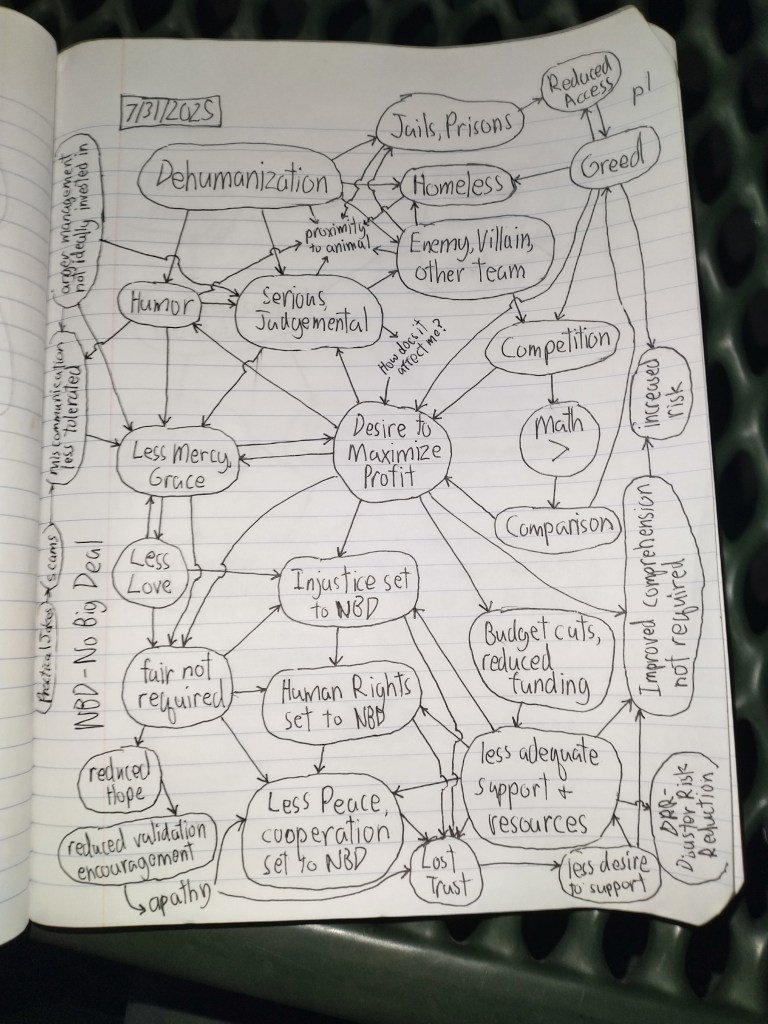 7/31/2025
p1
Reduced
Access
Jails, Prisons
Greed
Dehumanization
Homeless
proximity
to animal
Enemy, Villain,
other team
anger management
not ideally invested in
Humor
Serious,
Judgemental
How does it
affect me?
Competition
miscommunication
less tolerated
increased
risk
Less Mercy,
Grace
Desire to
Maximize
Profit
Math
>
Comparison
scams
Practical Jokes
NBD-No Big Deal
Less
Love
Injustice set
to NBD
Budget cuts,
reduced
funding
Improved comprehension
not required
fair not
required
Human Rights
set to NBD
reduced
Hope
less adequate
support +
resources
Less Peace,
cooperation
set to NBD
DRR-
Disaster Risk
Reduction
reduced validation
encouragement
apathy
Lost
Trust
less desire
to support